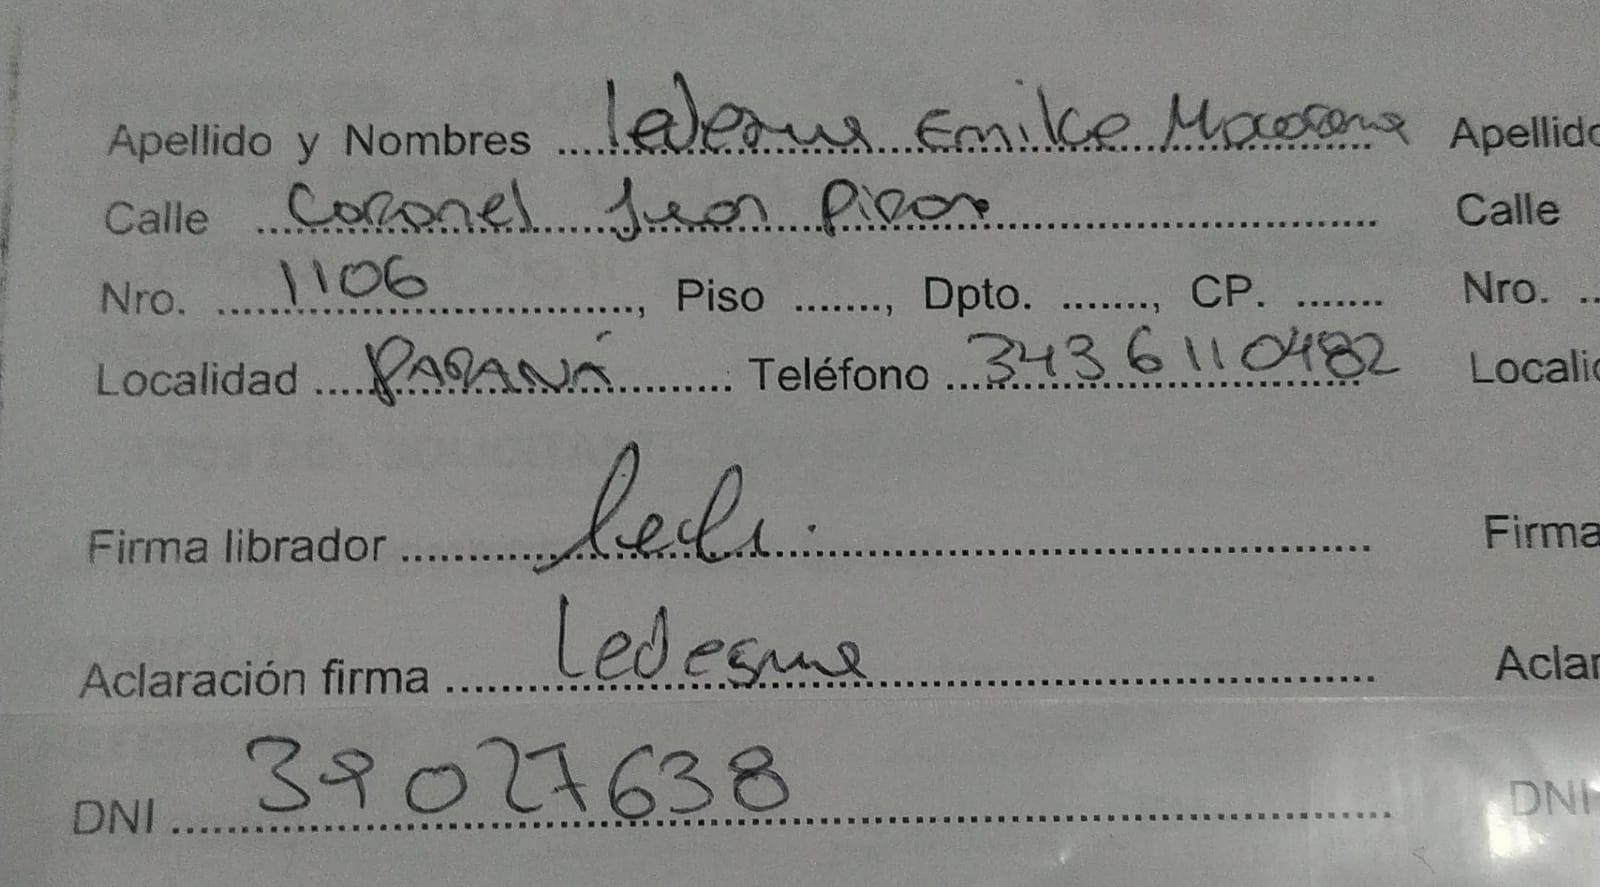 Apellido y Nombres Ledesma Emilce Macarena Apellido
Calle Coronel Juan Piran Calle
Nro. 1106, Piso ......., Dpto. ......., CP. ....... Nro.
Localidad PARANÁ Teléfono 3436110482 Localid
Firma librador Led. Firma
Aclaración firma Ledesma Aclar
DNI 39027638 DNI